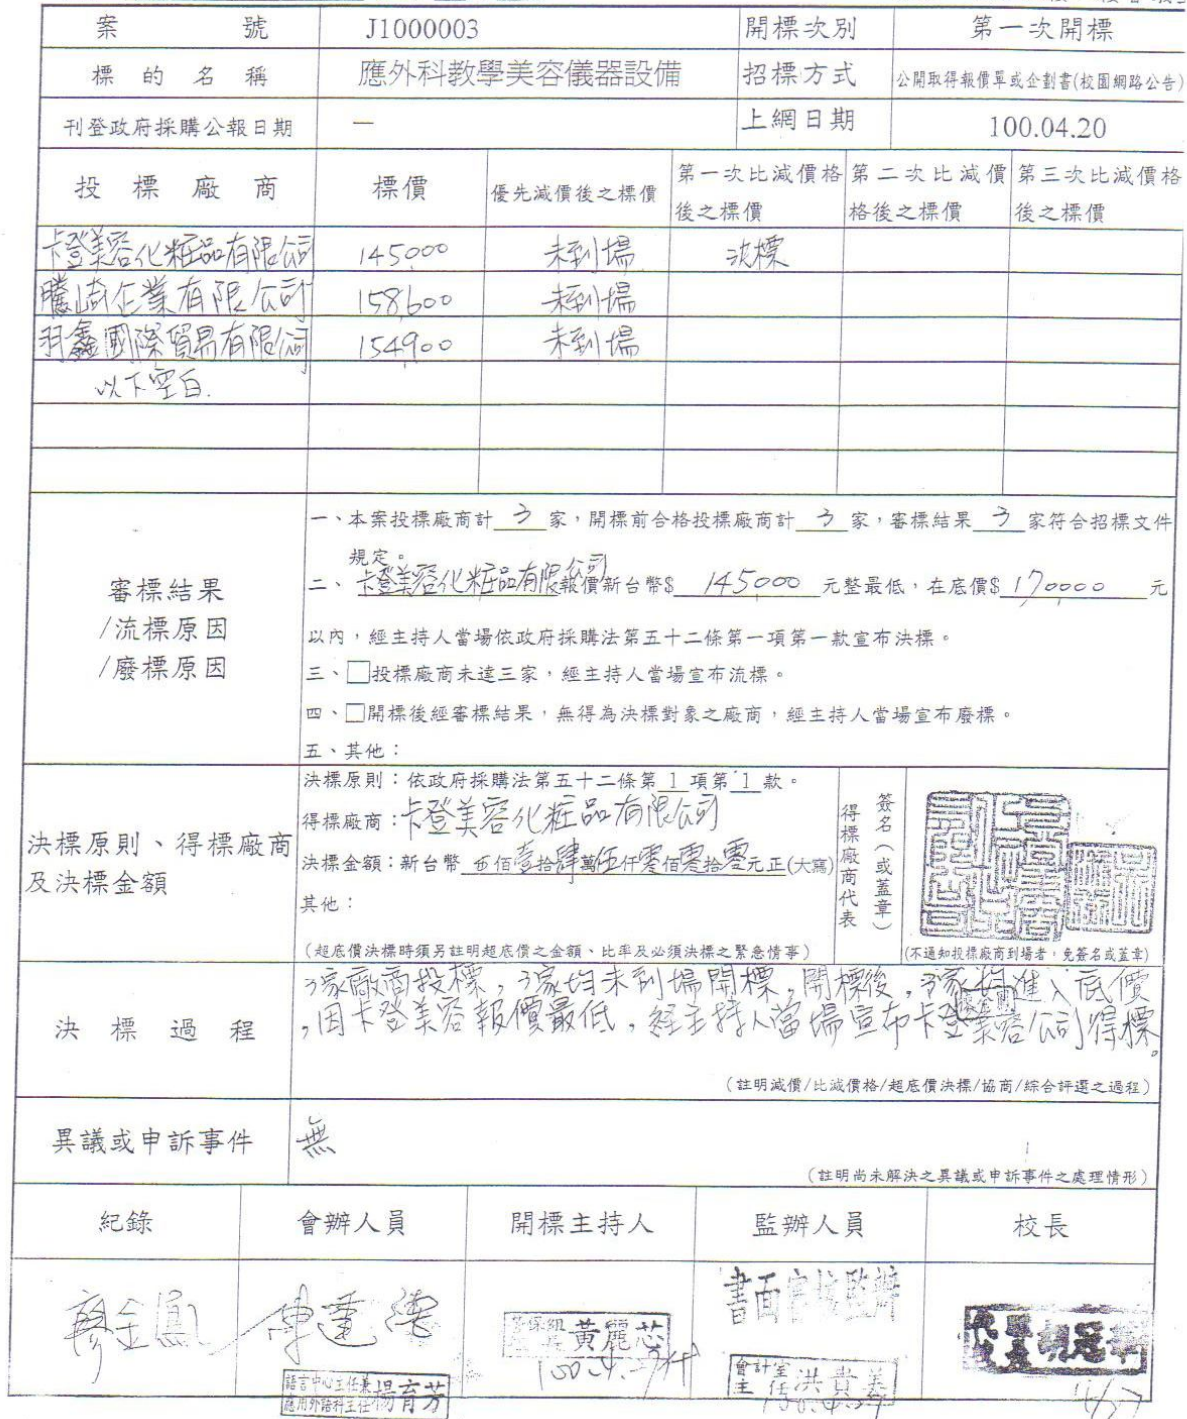 案號 J1000003 開標次別 第一次開標
標的名稱 應外科教學美容儀器設備 招標方式 公開取得報價單或企劃書(校園網路公告)
刊登政府採購公報日期 — 上網日期 100.04.20
投標廠商 標價 優先減價後之標價 第一次比減價格後之標價 第二次比減價格後之標價 第三次比減價格後之標價
卡登美容化粧品有限公司 145000 未到場 決標
騰崎企業有限公司 158600 未到場
羽鑫國際貿易有限公司 154900 未到場
以下空白.
審標結果
/流標原因
/廢標原因
一、本案投標廠商計 3 家,開標前合格投標廠商計 3 家,審標結果 3 家符合招標文件
規定。
二、卡登美容化粧品有限公司報價新台幣$ 145000 元整最低,在底價$ 170000 元
以內,經主持人當場依政府採購法第五十二條第一項第一款宣布決標。
三、□投標廠商未達三家,經主持人當場宣布流標。
四、□開標後經審標結果,無得為決標對象之廠商,經主持人當場宣布廢標。
五、其他:
決標原則、得標廠商
及決標金額
決標原則:依政府採購法第五十二條第 1 項第 1 款。
得標廠商:卡登美容化粧品有限公司
決標金額:新台幣 佰壹拾肆萬伍仟零佰零拾零元正(大寫)
其他:
(超底價決標時須另註明超底價之金額、比率及必須決標之緊急情事)
得標廠商代表
簽名(或蓋章)
(不通知投標廠商到場者,免簽名或蓋章)
決標過程
3家廠商投標,3家均未到場開標,開標後,3家均進入底價
,因卡登美容報價最低,經主持人當場宣布卡登美容公司得標。
(註明減價/比減價格/超底價決標/協商/綜合評選之過程)
異議或申訴事件 無
(註明尚未解決之異議或申訴事件之處理情形)
紀錄 會辦人員 開標主持人 監辦人員 校長
廖金鳳
語言中心主任兼
應用外語科主任 楊育芳
黃麗芯
書面審核監辦
會計室
主任 洪貴美
4/27